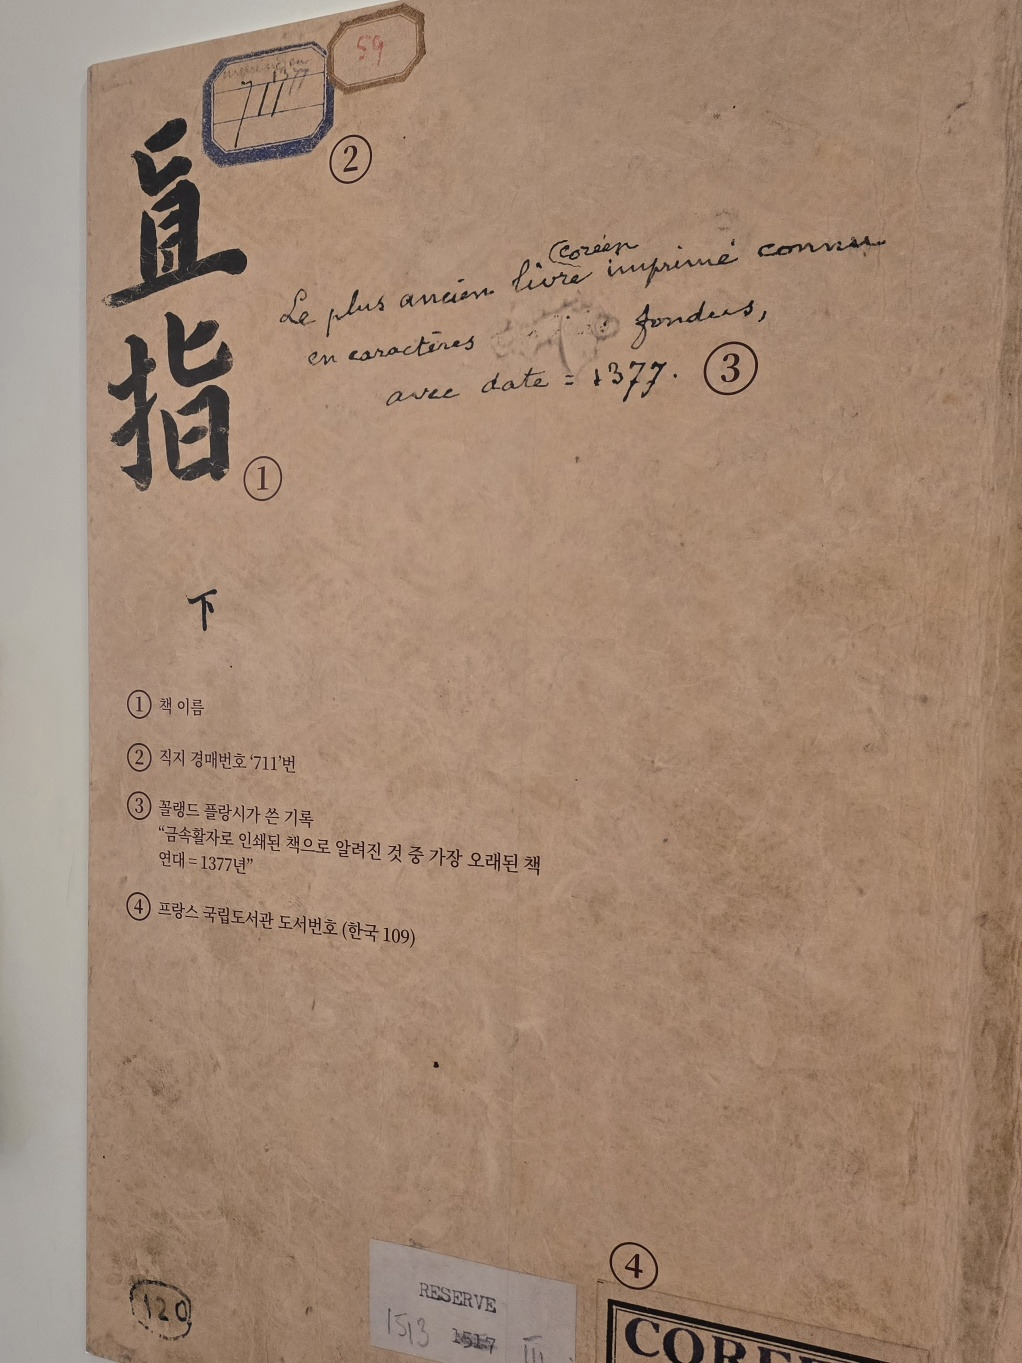 59
711
②
直
指
①
Le plus ancien livre (coréen imprimé connu
en caractères fondus,
avec date = 1377.
③
下
① 책 이름
② 직지 경매번호 ‘711’번
③ 꼴랭드 플랑시가 쓴 기록
“금속활자로 인쇄된 책으로 알려진 것 중 가장 오래된 책
연대 = 1377년”
④ 프랑스 국립도서관 도서번호 (한국 109)
④
120
RESERVE
1513 1517 III